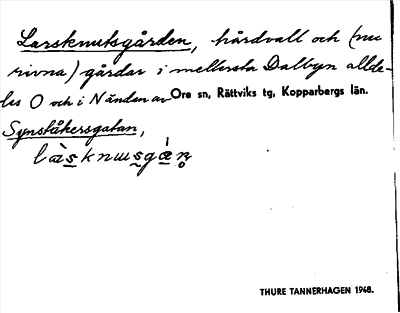 Larsknutsgården, hårdvall och (nu
rivna) gårdar i mellersta Dalbyn allde-
les O och i N änden av Ore sn, Rättviks tg, Kopparbergs län.
Synståkersgatan,
THURE TANNERHAGEN 1948.